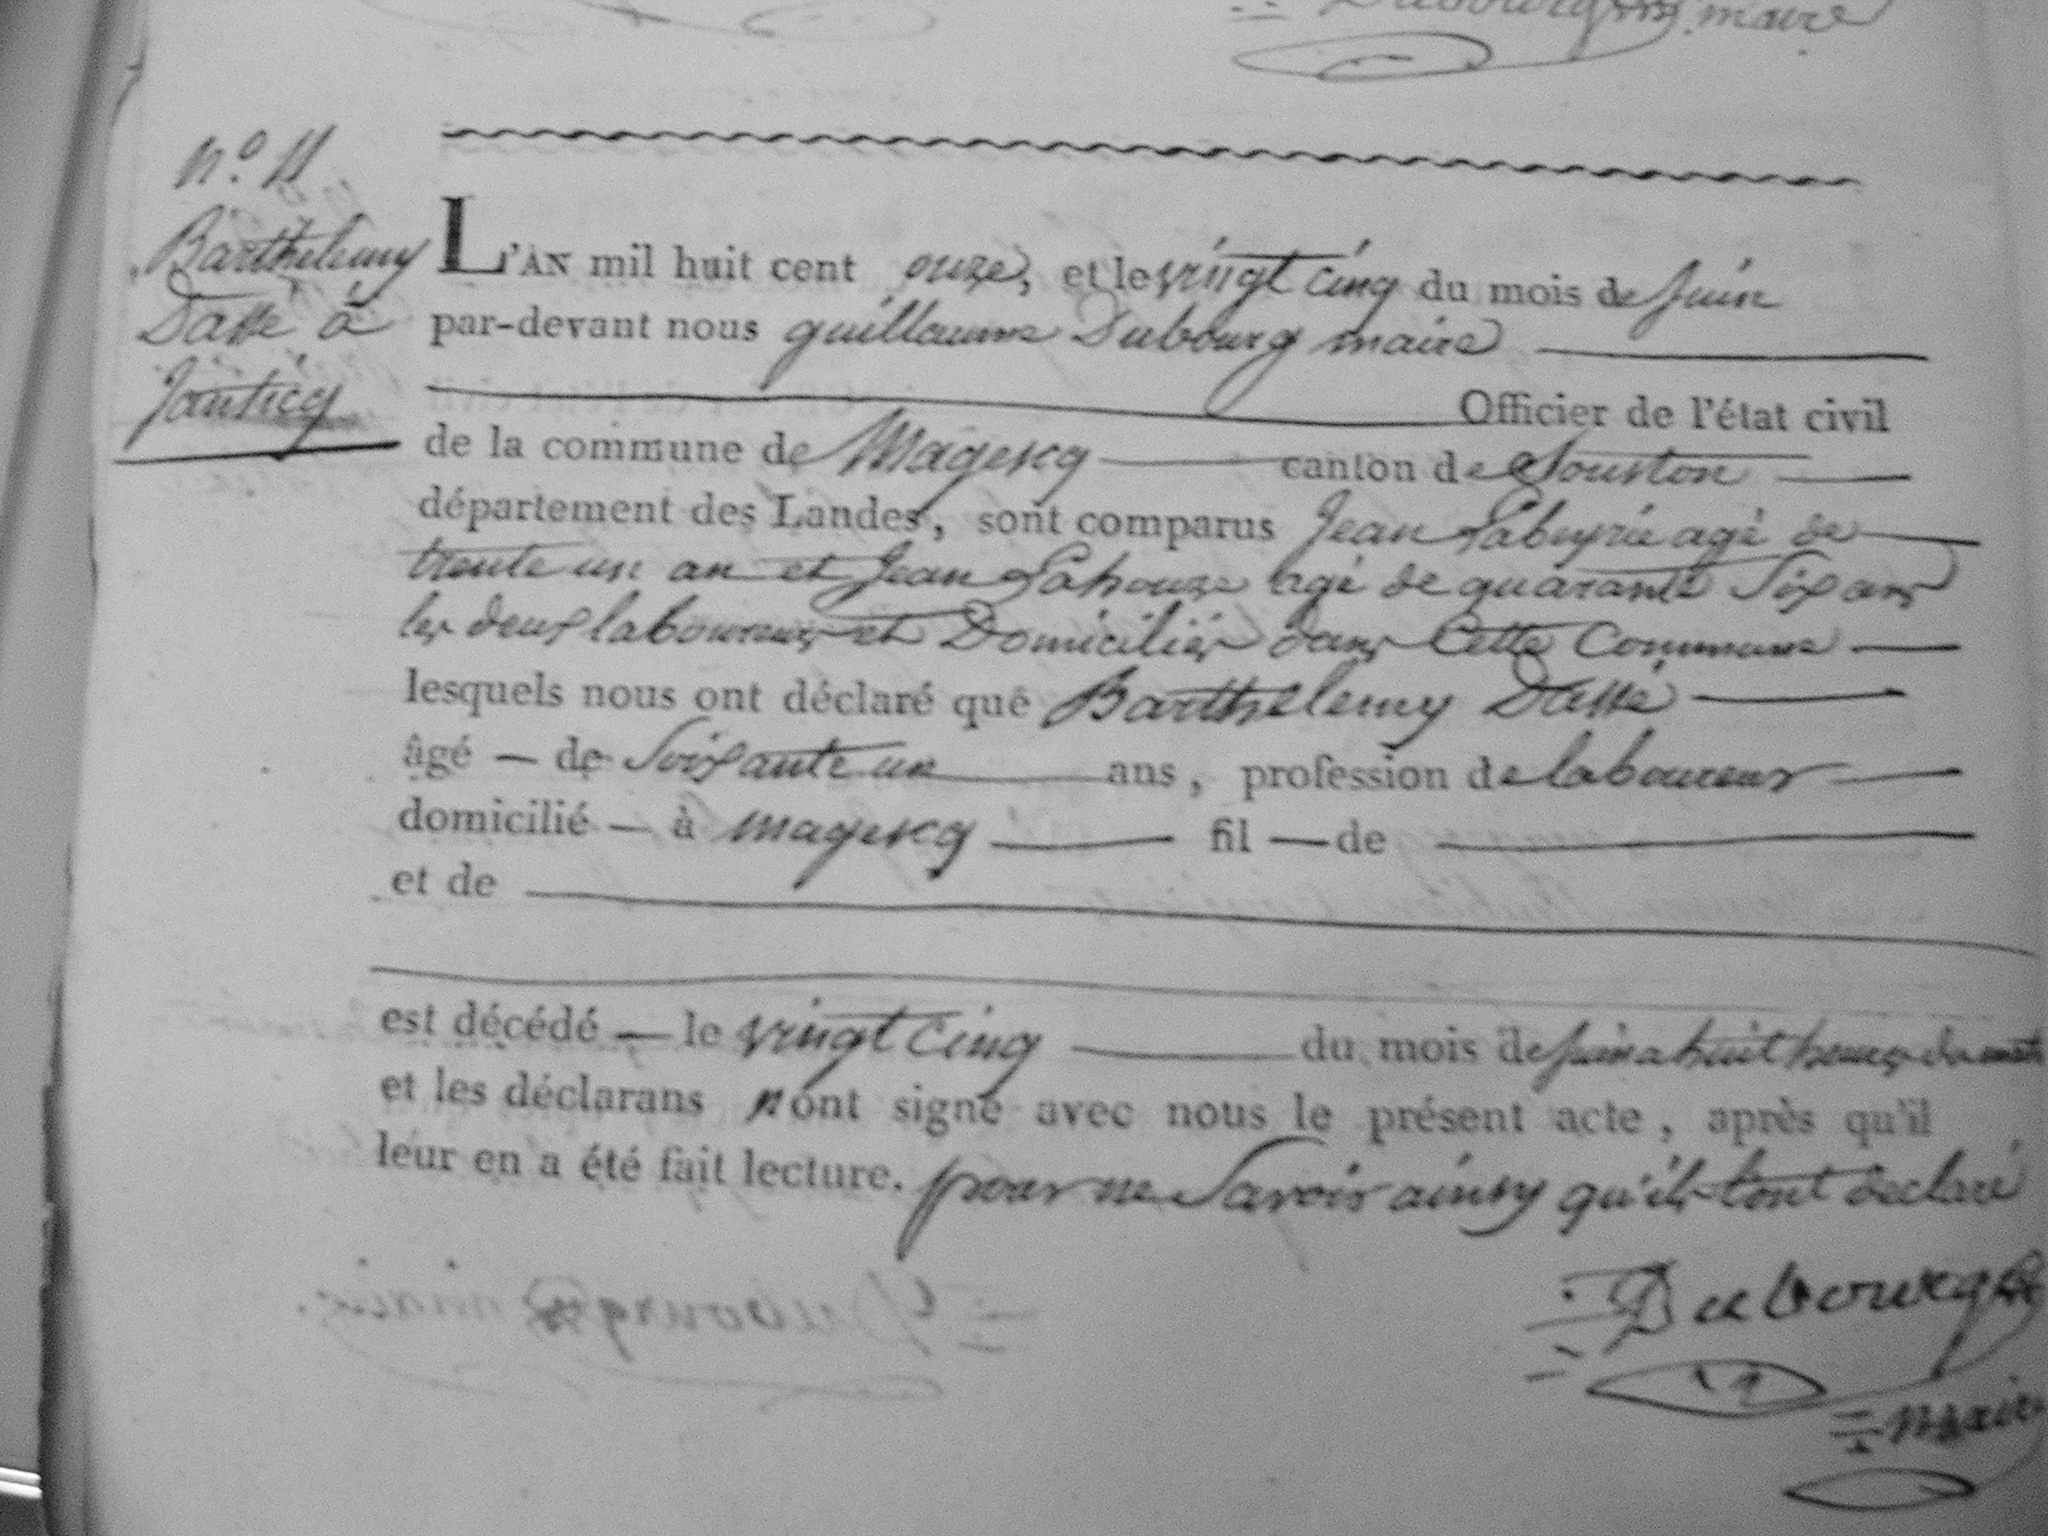 Dubourg maire
n.º 11
Barthelemy
Dassé à
Janticq
L'AN mil huit cent onze, et le vingt cinq du mois de juin
par-devant nous guillaume Dubourg maire
Officier de l'état civil
de la commune de Magescq canton de Souston
département des Landes, sont comparus Jean Labeyrie agé de
trente un an et Jean Lahouze agé de quarante six ans
les deux laboureurs et Domiciliés dans Cette Commune
lesquels nous ont déclaré que Barthelemy Dassé
âgé de Soixante un ans, profession de laboureur
domicilié à magescq fil de
et de
est décédé le vingt cinq du mois de juin a huit heures du matin
et les déclarans n'ont signé avec nous le présent acte, après qu'il
leur en a été fait lecture. pour ne Savoir ainsy qu'ils l'ont déclaré
Dubourg
maire